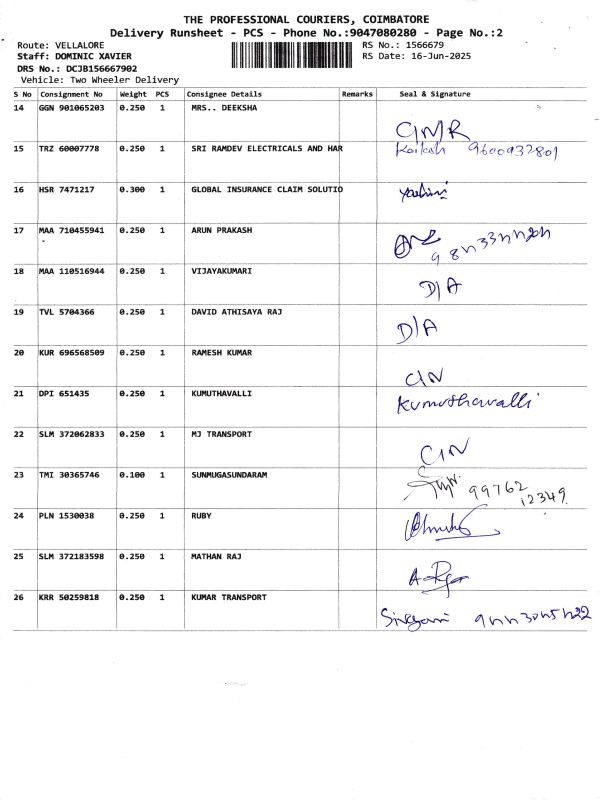 THE PROFESSIONAL COURIERS, COIMBATORE
Delivery Runsheet - PCS - Phone No.:9047080280 - Page No.:2
Route: VELLALORE RS No.: 1566679
Staff: DOMINIC XAVIER RS Date: 16-Jun-2025
DRS No.: DCJB156667902
Vehicle: Two Wheeler Delivery
S No Consignment No Weight PCS Consignee Details Remarks Seal & Signature
14 GGN 901065203 0.250 1 MRS.. DEEKSHA
15 TRZ 60007778 0.250 1 SRI RAMDEV ELECTRICALS AND HAR Kailash 9600932801
16 HSR 7471217 0.300 1 GLOBAL INSURANCE CLAIM SOLUTIO
17 MAA 710455941 0.250 1 ARUN PRAKASH
-
18 MAA 110516944 0.250 1 VIJAYAKUMARI D/A
19 TVL 5704366 0.250 1 DAVID ATHISAYA RAJ D/A
20 KUR 696568509 0.250 1 RAMESH KUMAR C/N
21 DPI 651435 0.250 1 KUMUTHAVALLI Kumuthavalli
22 SLM 372062833 0.250 1 MJ TRANSPORT C/N
23 TMI 30365746 0.100 1 SUNMUGASUNDARAM 99762
12349
24 PLN 1530038 0.250 1 RUBY
25 SLM 372183598 0.250 1 MATHAN RAJ
26 KRR 50259818 0.250 1 KUMAR TRANSPORT